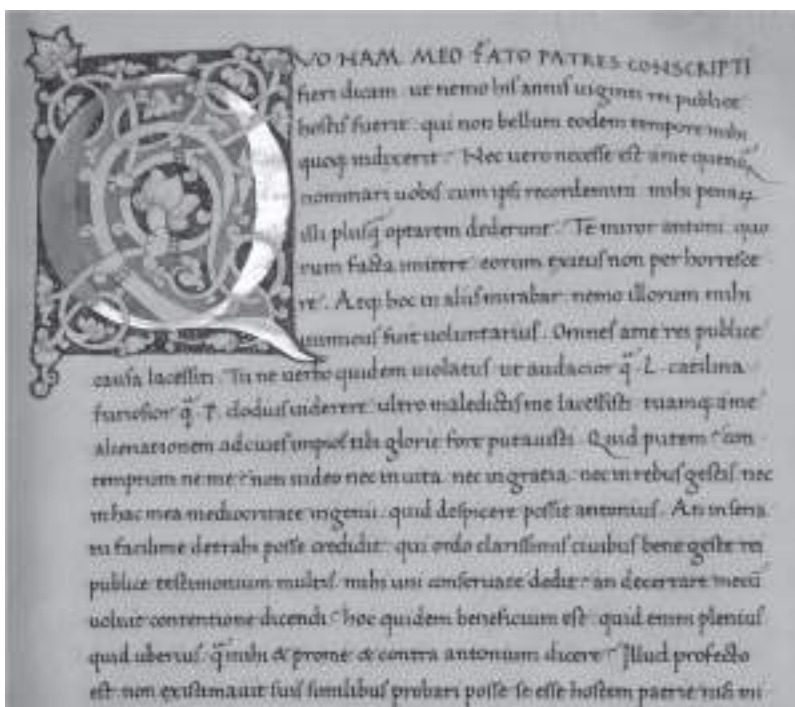 QVO NAM MEO FATO PATRES CONSCRIPTI
fieri dicam ut nemo hiſ anniſ uiginti rei publice
hoſtiſ fuerit qui non bellum eodem tempore mihi
quoq; indixerit. Nec uero neceſſe eſt a me quenq̄
nominari uobiſ cum ipſi recordemini mihi penaꝝ
illi pluſq̄ optarem dederunt. Te miror antoni quo
rum facta imitere eorum exituſ non perhorreſce
re. Atq; hoc in aliiſ mirabar nemo illorum mihi
inimicuſ fuit uoluntariuſ. Omneſ a me rei publice
cauſa laceſſiti. Tu ne uerbo quidem uiolatuſ ut audacior q̄ L. catilina
furioſior q̄ P. clodiuſ uiderere ultro maledictiſ me laceſſiſti tuamq; a me
alienationem ad ciueſ impioſ tibi glorie fore putauiſti. Quid putem? con
temptum ne me? non uideo nec in uita nec in gratia nec in rebuſ geſtiſ nec
in hac mea mediocritate ingenii quid deſpicere poſſit antoniuſ. An in ſena
tu facilime detrahi poſſe credidit qui ordo clariſſimiſ ciuibuſ bene geſte rei
publice teſtimonium multiſ mihi uni conſeruate dedit? an decertare mecū
uoluit contentione dicendi? hoc quidem beneficium eſt quid enim pleniuſ
quid uberiuſ q̄ mihi & pro me & contra antonium dicere? Illud profecto
eſt non exiſtimauit ſuiſ ſimilibuſ probari poſſe ſe eſſe hoſtem patrie niſi mi